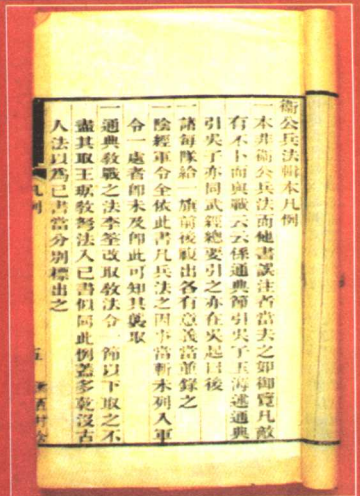 衞公兵法輯本凡例
一本非衞公兵法而他書誤注者當去之卽御覽凡敵
有不卜而與戰云云係通典節引吳子玉海述通典
引吳子亦同武經總要引之亦在吳起曰後
一諸每隊給一旗前後觀出各有意義當並錄之
一陰經軍令全依此書凡兵法之因事當斬未列入軍
令一處者卽未及卽此可知其襲取
一通典教戰之法李筌改取教法令一節以下取之不
盡其取王琚教弩法入已書似同此例蓋多乾沒古
人法以爲已書當分別標出之
凡例
五